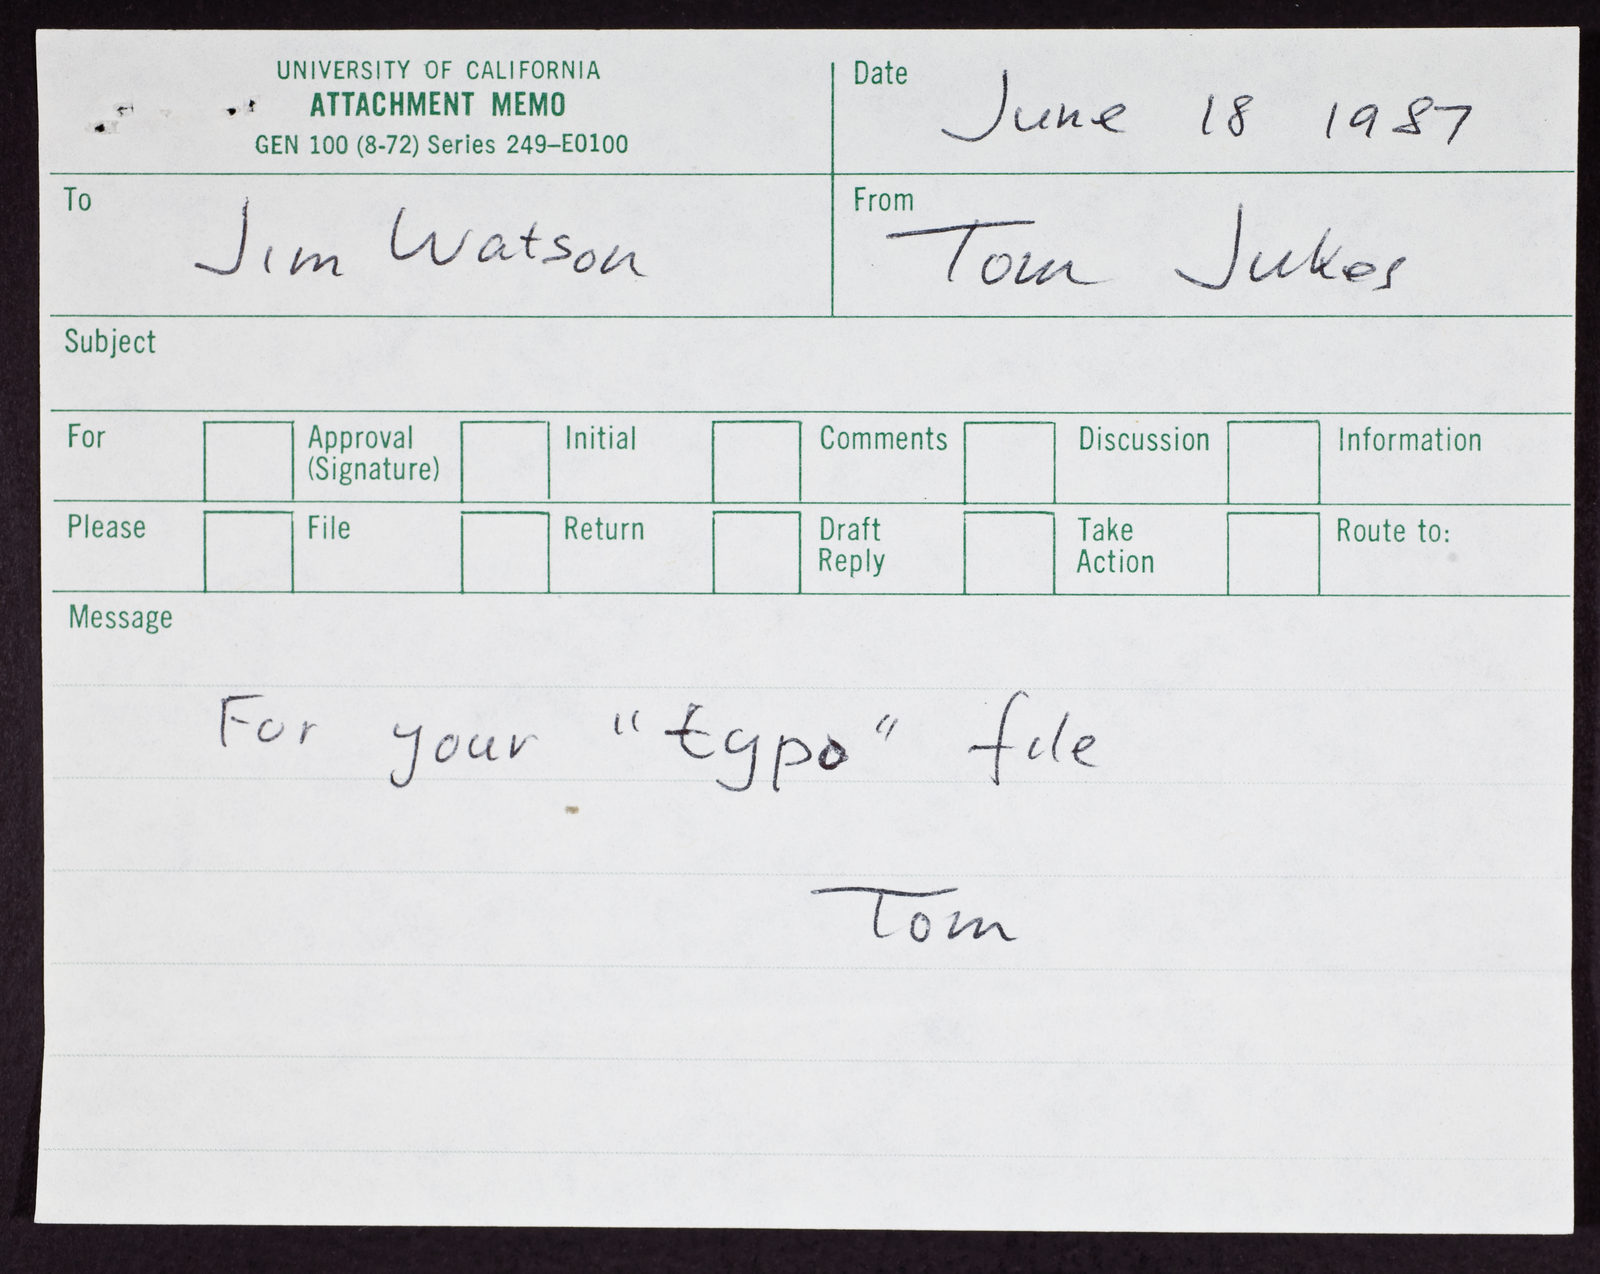 UNIVERSITY OF CALIFORNIA
ATTACHMENT MEMO
GEN 100 (8-72) Series 249–E0100
Date June 18 1987
To Jim Watson
From Tom Jukes
Subject
For Approval (Signature) Initial Comments Discussion Information
Please File Return Draft Reply Take Action Route to:
Message
For your "typo" file
Tom